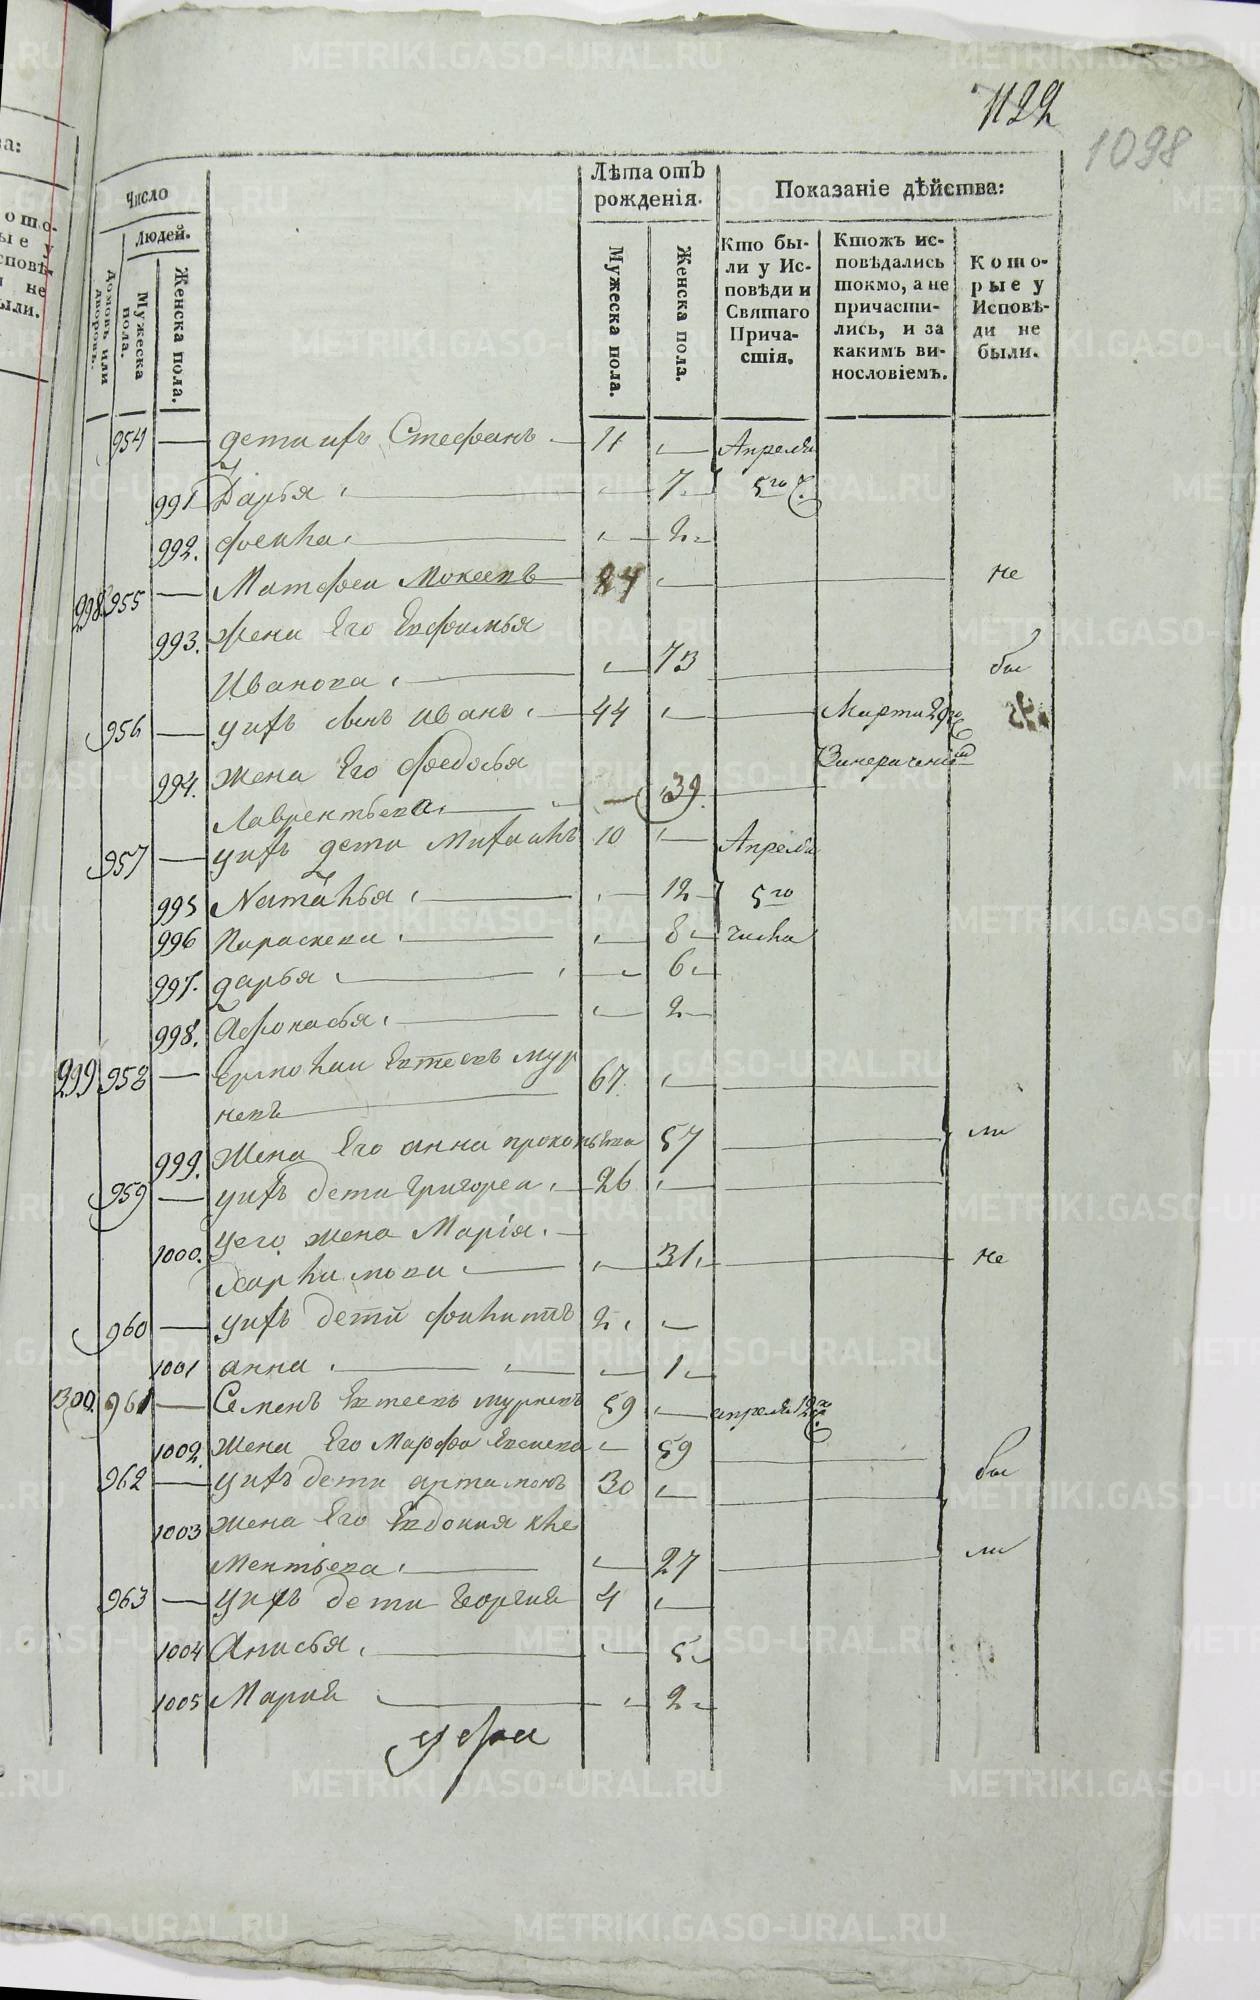 1122
1098
Число
Людей.
Домовъ или дворовъ.
Мужеска пола.
Женска пола.
Лѣта отъ рожденія.
Мужеска пола.
Женска пола.
Показаніе дѣйства:
Кто бы-
ли у Ис-
повѣди и
Святаго
Прича-
стія.
Ктожъ ис-
повѣдались
токмо, а не
причасти-
лись, и за
какимъ ви-
нословіемъ.
Кото-
рые у
Исповѣ-
ди не
были.
954 — дети ихъ Стефанъ — 11 — Апреля
991 Дарья — 7 5го ч.
992. — 2
298. 955 — Матфеи Мокеевъ — не
993. Жена Его Евфимья
Иванова — 73 — бы
956 — у ихъ сынъ Иванъ — 44 — Марта 29го
994. Жена Его Федосья
Лаврентьева — 39.
957 — у ихъ дети Михаилъ 10 — Апреля
995 Наталья — 12 5го
996 Параскева — 8 числа
997. дарья — 6
998. Афонасья — 2
299 958 — Ермолаи Евтеевъ мур
невъ — 67
999. Жена Его анна прокопьева 57 — ли
959 — у ихъ дети Григореи — 26
1000. у его жена Марія —
— 31 — не
960 — у ихъ дети 2
1001 анна — 1
300. 961 — Семенъ Евтеевъ мурневъ 59 — апреля 12го
1002. Жена Его Марфа — 59
962 — у ихъ дети артамонъ 30 — бы
1003 Жена Его Евдокия кле
ментьева — 27 — ли
963 — у ихъ дети Георгий 4
1004 Анисья — 5
1005 Мария — 2